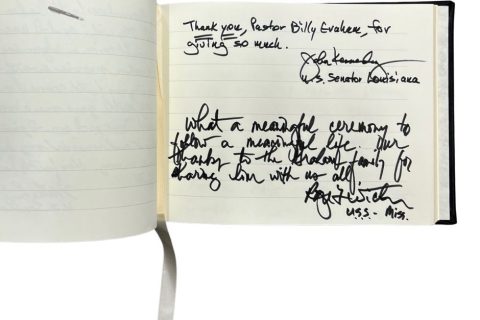 Thank you, Pastor Billy Graham, for
giving so much.
John Kennedy
U.S. Senator Louisiana
What a meaningful ceremony to
follow a meaningful life. Our
thanks to the Graham family for
sharing him with us all.
Roger F Wicker
U.S.S. - Miss.